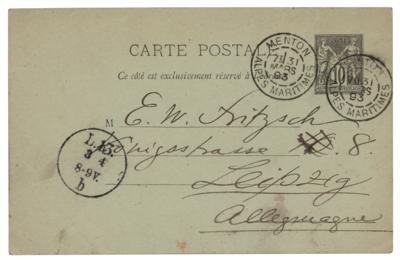 CARTE POSTALE
Ce côté est exclusivement réservé à
MENTON
31
MARS
93
ALPES MARITIMES
10
MENTON
31
93
ALPES MARITIMES
M E. W. Fritzsch
Königsstrasse 8.
Leipzig
Allemagne
L.13.
3 4
8-9V.
b